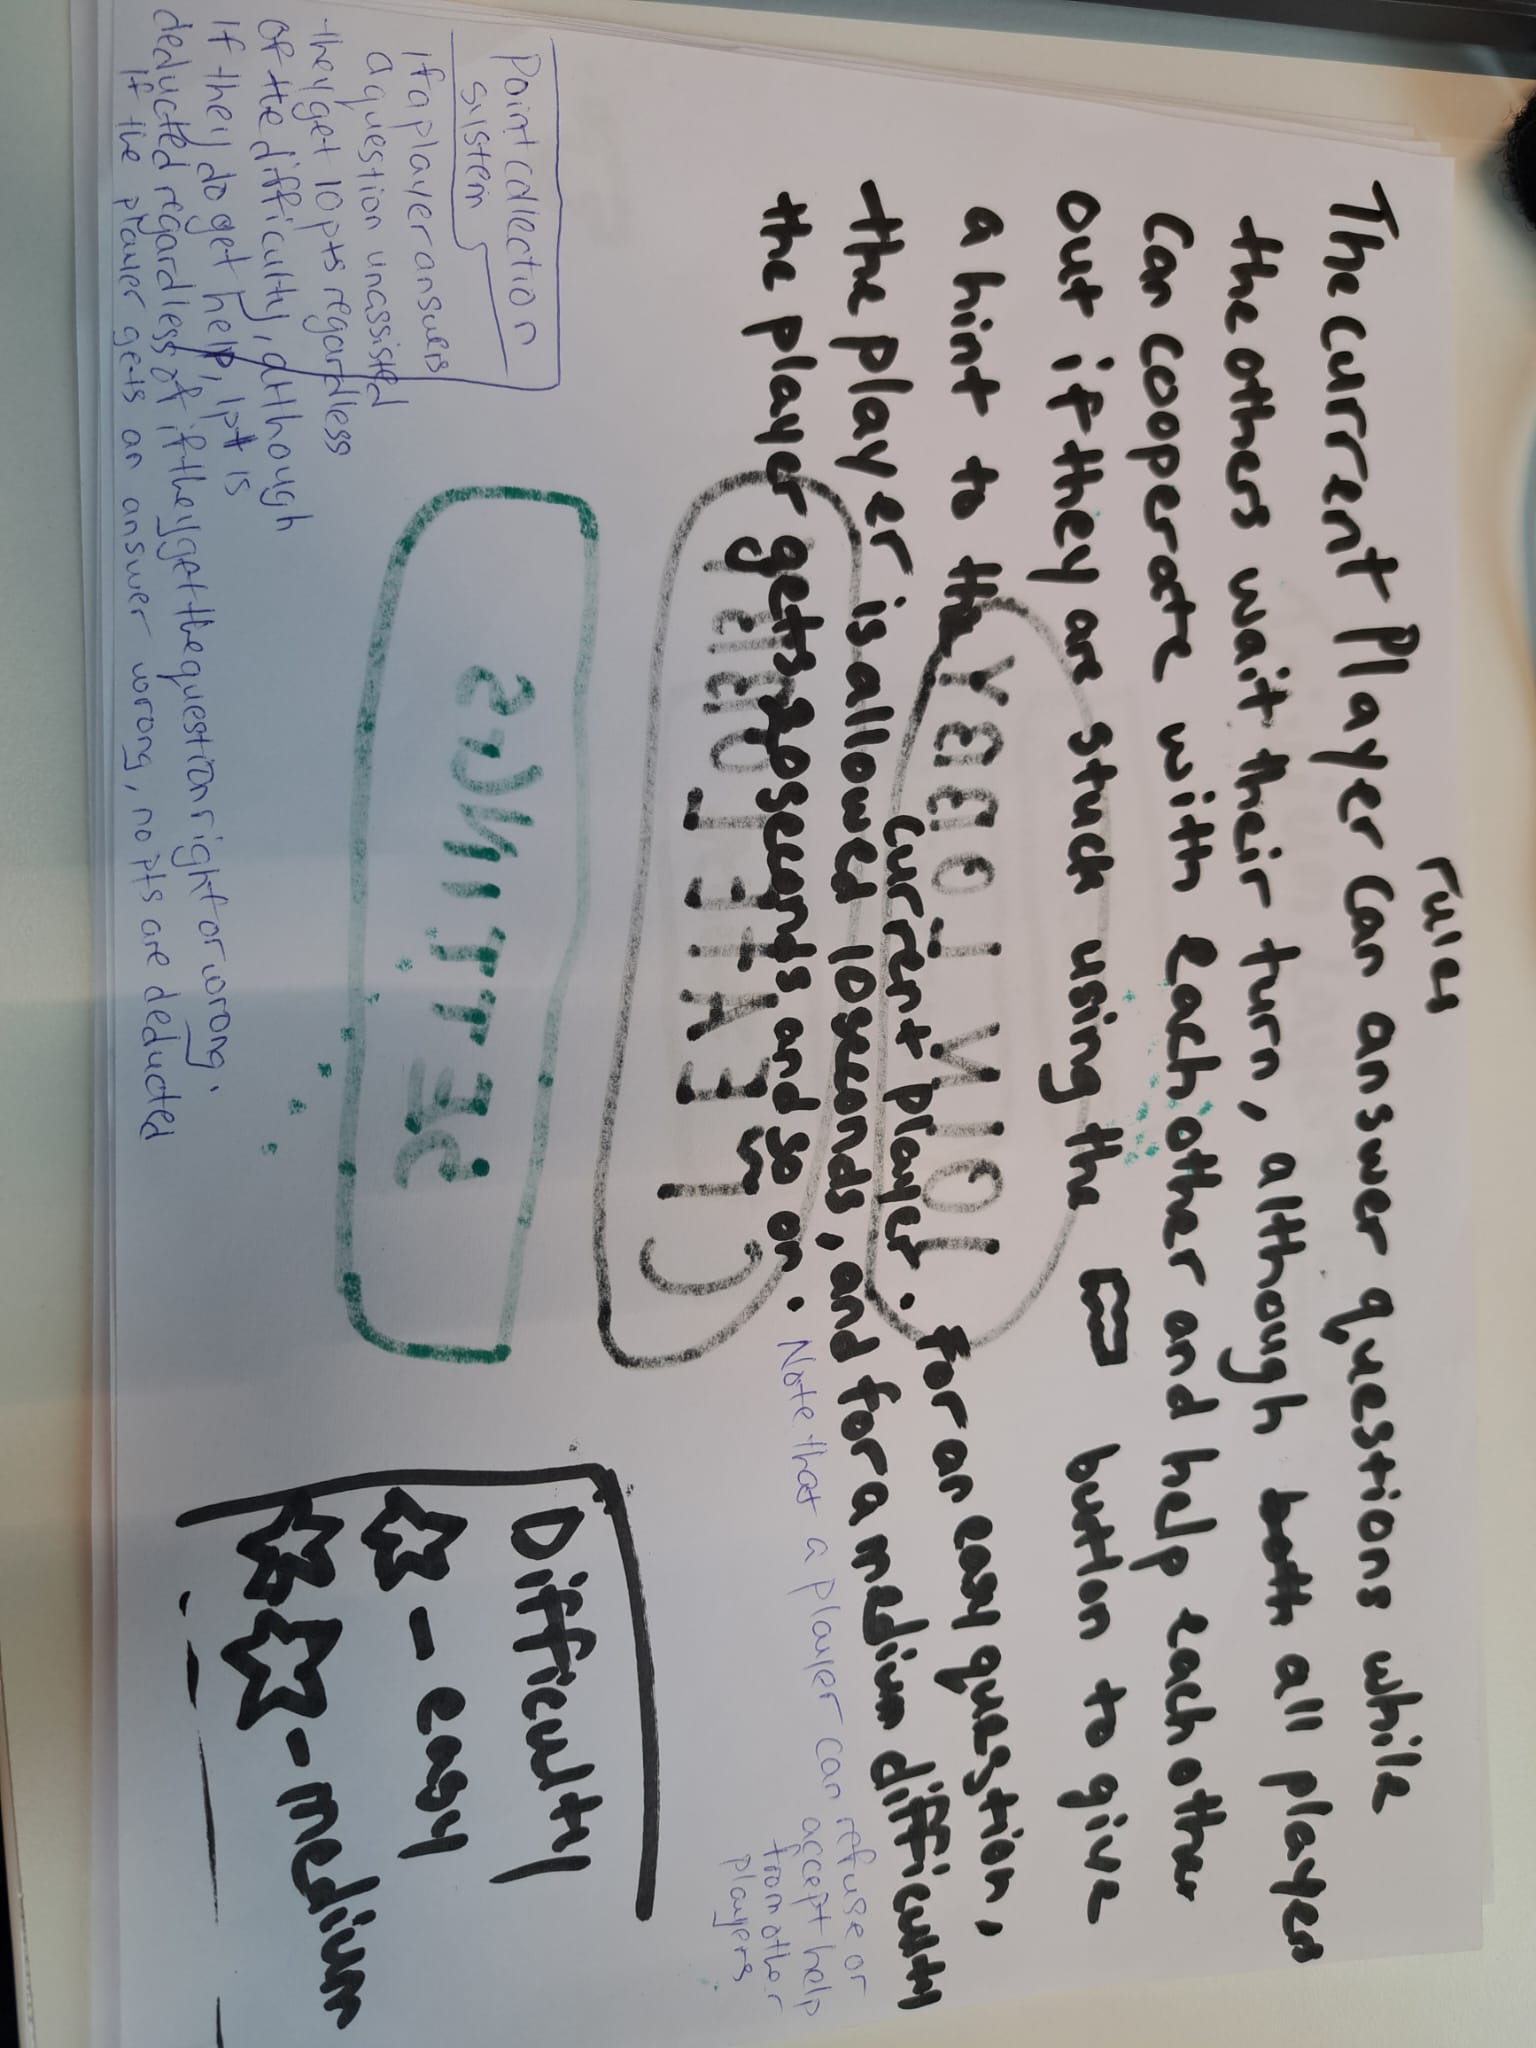 rules
The current Player Can answer questions while
the others wait their turn, although all players
Can cooperate with each other and help each other
out if they are stuck using the button to give
a hint to the current player. For an easy question,
the player is allowed 10 seconds, and for a medium difficulty
the player gets 20 seconds and so on.
Note that a player can refuse or
accept help
from other
players
Point collection
sistem
If a player answers
a question unassisted
they get 10 pts regardless
of the difficulty, although
If they do get help, 1pt is
deducted regardless of if they get the question right or wrong.
If the player gets an answer wrong, no pts are deducted
Difficulty
- easy
- medium
JOIN LOBBY
SETTINGS